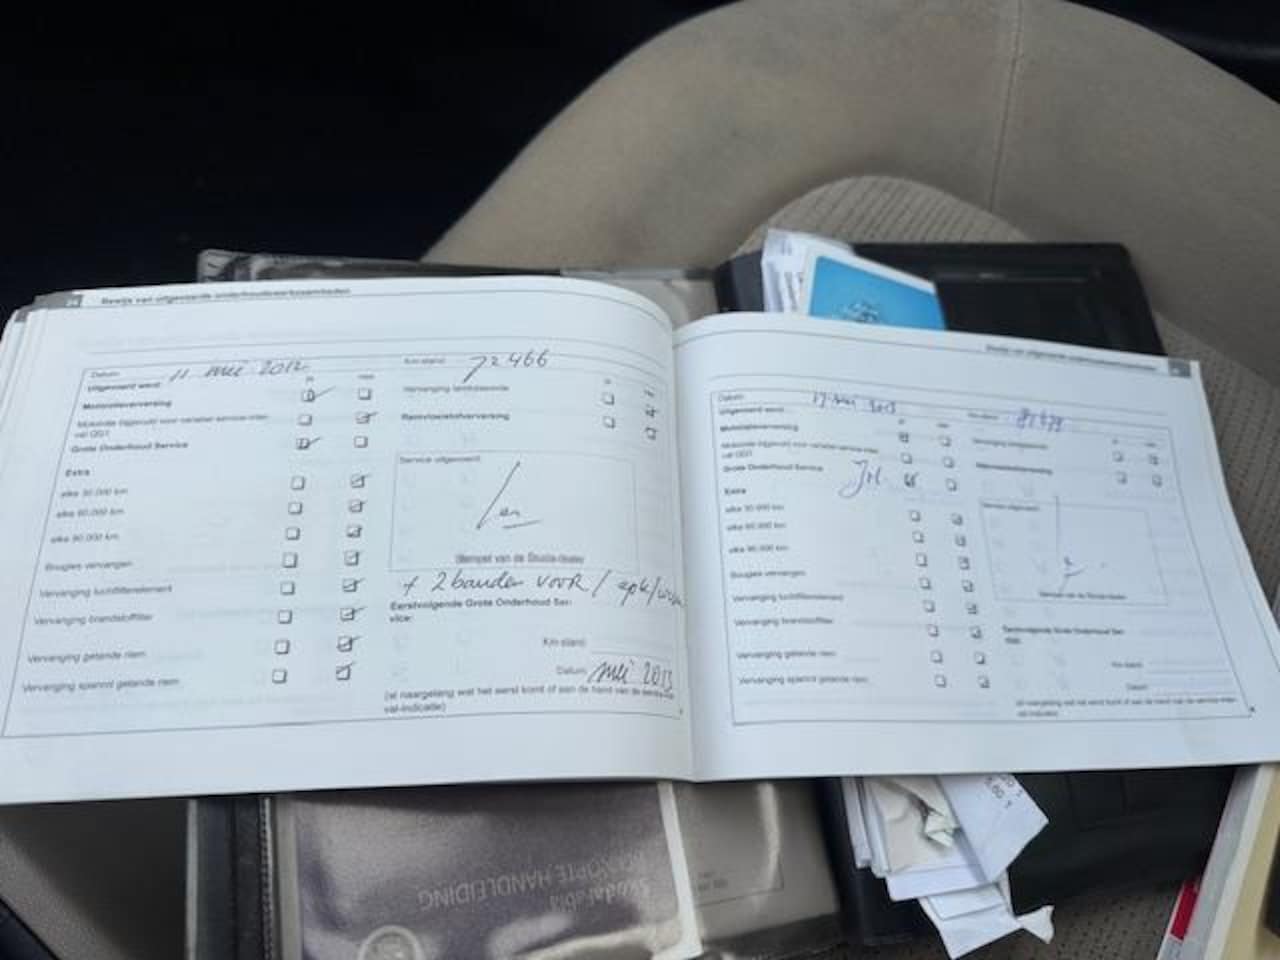 24 Bewijs van uitgevoerde onderhoudswerkzaamheden
Datum: 11 mei 2012
Km-stand: 72466
Uitgevoerd werd:
ja nee
Motorolieverversing
Vervanging
Motorolie (bijgevuld) voor variabel service-inter-
val QG1
Remvloeistofverversing
Grote Onderhoud Service
Extra
Service uitgevoerd:
elke 30.000 km
elke 60.000 km
elke 90.000 km
(Stempel van de Škoda-dealer)
Bougies vervangen
+ 2 banden voor / apk/
Vervanging luchtfilterelement
Eerstvolgende Grote Onderhoud Ser-
vice:
Vervanging brandstoffilter
Km-stand:
Vervanging getande riem
Datum: mei 2013
Vervanging spanrol getande riem
(al naargelang wat het eerst komt of aan de hand van de service-inter-
val-indicatie)
Datum:
Km-stand:
Uitgevoerd werd:
Motorolieverversing
Motorolie (bijgevuld) voor variabel service-inter-
val QG1
Remvloeistofverversing
Grote Onderhoud Service
Extra
Service uitgevoerd:
elke 30.000 km
elke 60.000 km
elke 90.000 km
Bougies vervangen
(Stempel van de Škoda-dealer)
Vervanging luchtfilterelement
Vervanging brandstoffilter
Eerstvolgende Grote Onderhoud Ser-
vice:
Vervanging getande riem
Km-stand:
Vervanging spanrol getande riem
Datum:
(al naargelang wat het eerst komt of aan de hand van de service-inter-
val-indicatie)
ŠkodaFabia
BEKNOPTE HANDLEIDING